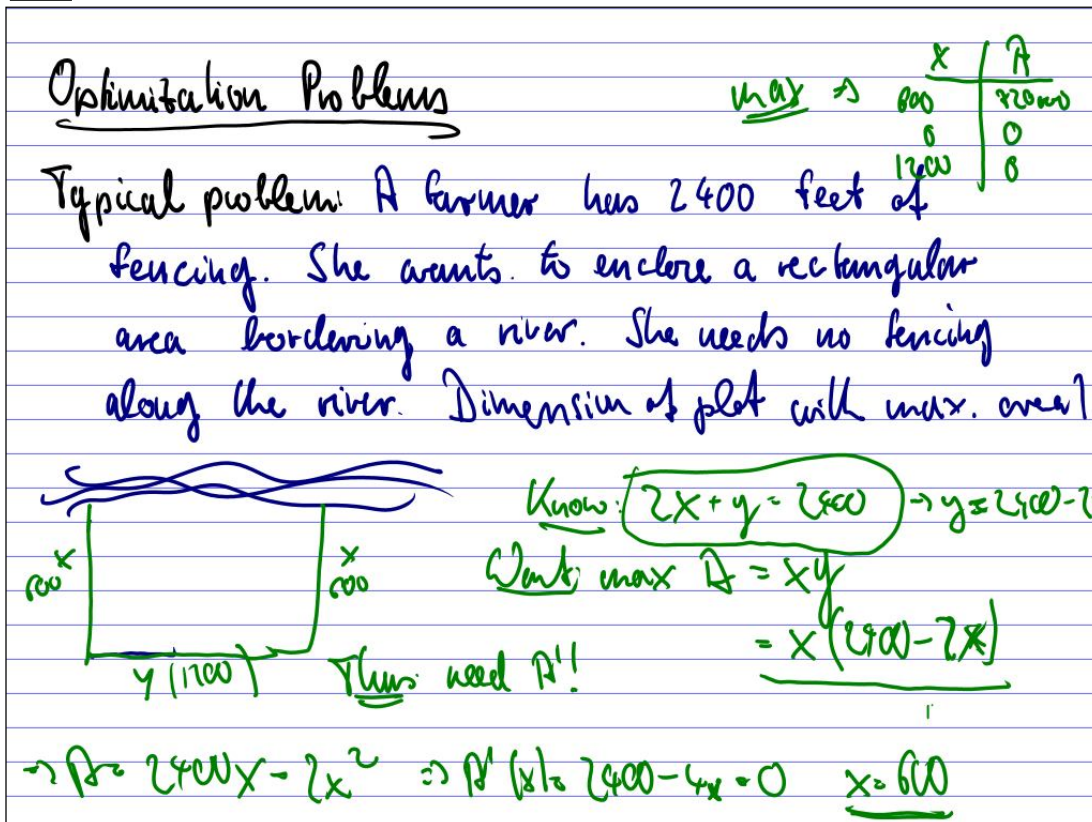 Optimization Problems
max ⇒
x | A
600 | 720000
0 | 0
1200 | 0
Typical problem: A farmer has 2400 feet of
fencing. She wants to enclose a rectangular
area bordering a river. She needs no fencing
along the river. Dimension of plot with max. area?
x
600
x
600
y (1200)
Know: 2x + y = 2400 → y = 2400 - 2
Want: max A = xy
= x(2400 - 2x)
Thus need A'!
⇒ A = 2400x - 2x² ⇒ A'(x) = 2400 - 4x = 0 x = 600